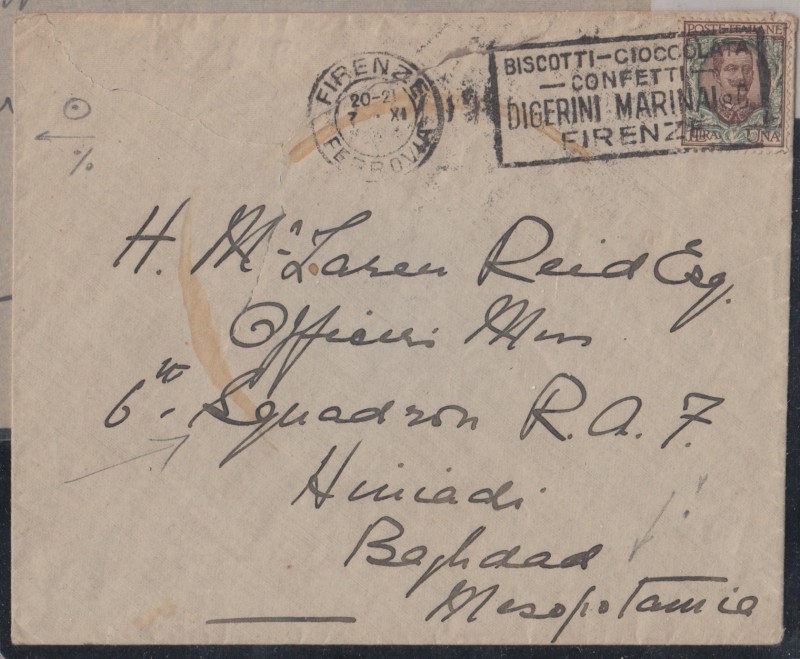 FIRENZE
20-21
7 XI
FERROVIA
BISCOTTI-CIOCCOLATA
-CONFETTI-
DIGERINI MARINAI & C
FIRENZE
POSTE·ITALIANE
LIRA UNA
%
H. McLaren Reid Esq.
Officers Mess
6th. Squadron R.A.F.
Hiniadi
Baghdad
Mesopotamia